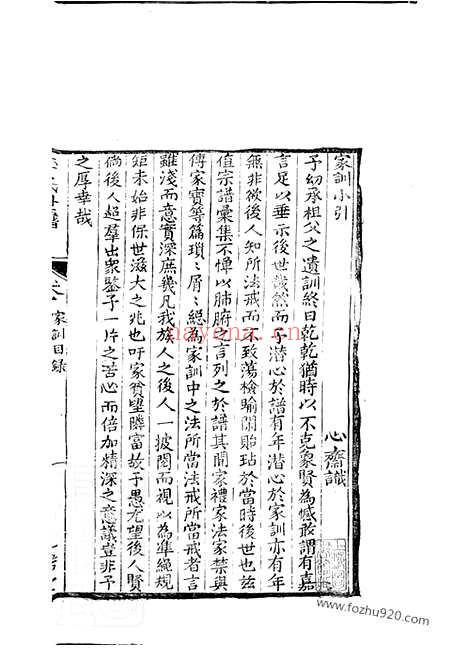 家訓小引
心齋識
予幼承祖父之遺訓終日乾乾猶時以不克象賢為慽敢謂有嘉
言足以垂示後世哉然而予潛心於譜有年潛心於家訓亦有年
無非欲後人知所法戒而不致蕩檢踰閑貽玷於當時後世也兹
值宗譜彙集不憚以肺腑之言列之於譜其間家禮家法家禁與
傳家寶等篇瑣瑣屑屑總為家訓中之法所當法戒所當戒者言
雖淺而意實深庶幾凡我族人之後人一披閱而視以為準繩規
矩未始非保世滋大之兆也吁家貧望鄰富故予愚尤望後人賢
倘後人超羣出衆鑒予一片之苦心而倍加精深之意議豈非予
之厚幸哉
家訓目錄
一
nayona.cn
www.fozhu920.com